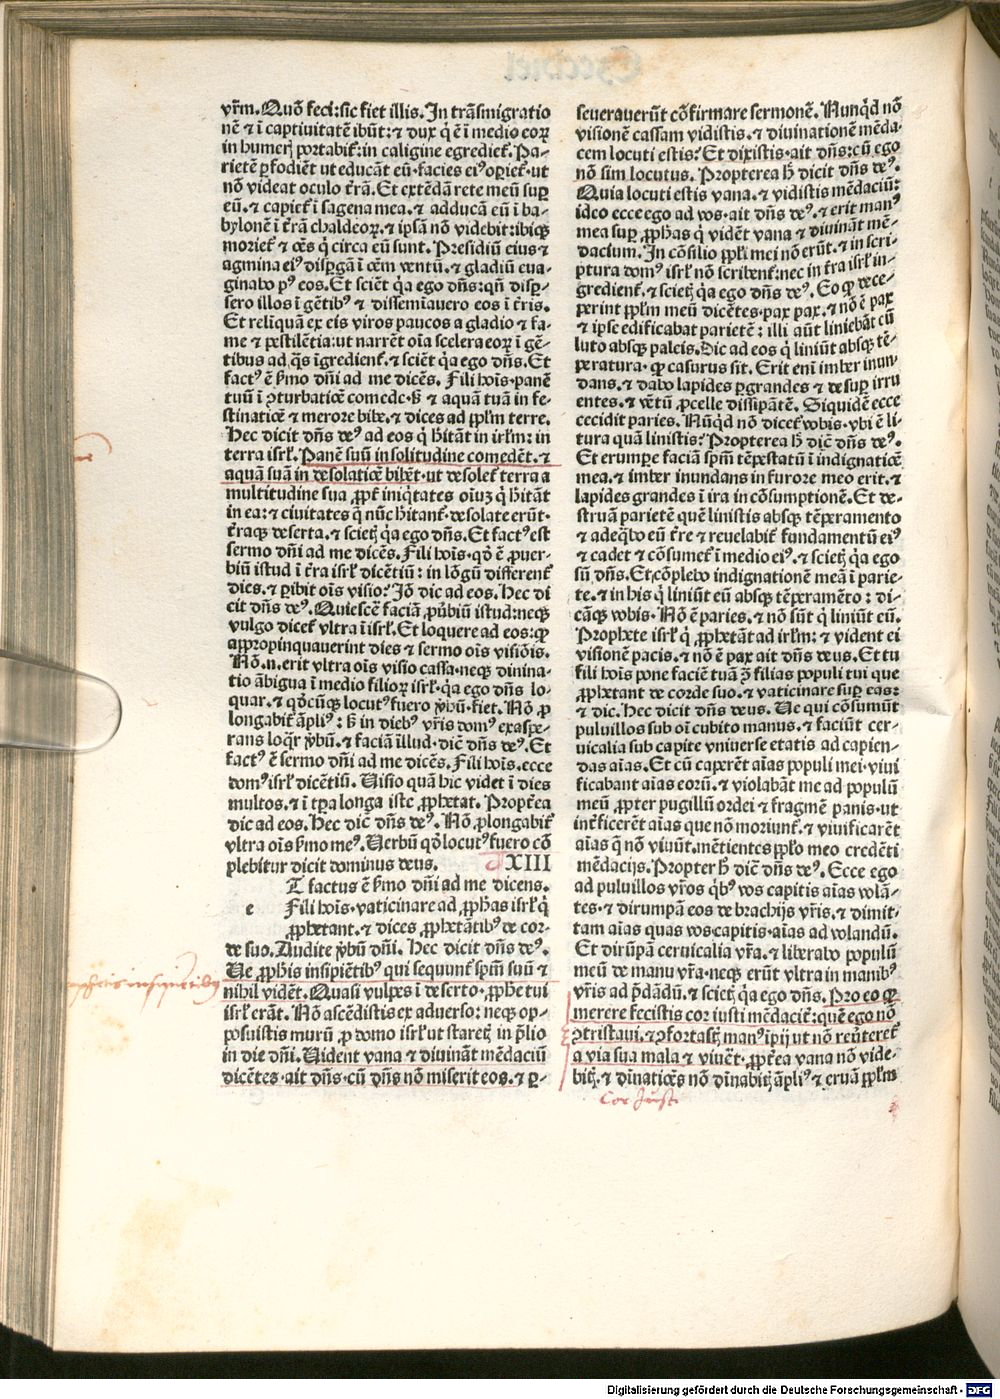 vr̄m. Quō feci: sic fiet illis. In trāsmigratio
nē ⁊ ī captiuitatē ibūt: ⁊ dux q̇ ē ī medio eoꝝ
in humerꝭ portabit᷑: in caligine egrediet᷑. Pa-
rietē ꝑfodiēt ut educāt eū. facies eiꝰ oꝑiet᷑. ut
nō videat oculo t̄rā. Et extēdā rete meū suꝑ
eū. ⁊ capiet᷑ ī sagena mea. ⁊ adducā eū ī ba-
bylonē ī t̄rā chaldeoꝝ. ⁊ ip̄sā nō videbit: ibiqꝫ
moriet᷑ ⁊ oēs q̇ circa eū sunt. Presidiū eius ⁊
agmina eiꝰ disꝑgā ī oēm ventū. ⁊ gladiū eua-
ginabo pꝰ eos. Et sciēt q̇a ego dn̄s: qn̄ disꝑ-
sero illos ī gētibꝰ ⁊ disseminauero eos ī t̄ris.
Et relīquā ex eis viros paucos a gladio ⁊ fa-
me ⁊ pestilētia: ut narrēt oīa scelera eoꝝ ī gē-
tibus ad q̄s īgredient᷑. ⁊ sciēt q̇a ego dn̄s. Et
factꝰ ē ẜmo dn̄i ad me dicēs. Fili hoīs. panē
tuū ī ꝯturbatiōē comede. ẜꝫ ⁊ aquā tuā in fe-
stinatiōe ⁊ merore bibe. ⁊ dices ad ppl̄m terre.
Hec dicit dn̄s deꝰ ad eos q̇ hītāt in irl̄m: in
terra isrl̄. Panē suū in solitudine comedēt. ⁊
aquā suā in desolatiōe bibēt. ut desolet᷑ terra a
multitudine sua ꝓpt᷑ iniq̇tates oīuꝫ q̇ hītāt
in ea: ⁊ ciuitates q̄ nūc hītant᷑. desolate erūt.
t̄raqꝫ deserta. ⁊ scietꝭ q̇a ego dn̄s. Et factꝰ est
sermo dn̄i ad me dicēs. Fili hoīs. qḋ ē ꝓuer-
biū istud ī t̄ra isrl̄ dicētiū: in lōgū different᷑
dies. ⁊ ꝑibit oīs visio? Iō dic ad eos. Hec di
cit dn̄s deꝰ. Quiescē faciā ꝓūbiū istud: neqꝫ
vulgo dicet᷑ vltra ī isrl̄. Et loquere ad eos: ꝙ
appropinquauerint dies ⁊ sermo oīs visiōis.
Nō .n. erit vltra oīs visio cassa. neqꝫ diuina-
tio ābigua ī medio filioꝝ isrl̄. q̇a ego dn̄s lo-
quar. ⁊ qḋcūqꝫ locutꝰ fuero v̄bū. fiet. Nō ꝓ
longabit᷑ āpliꝰ: ẜꝫ in diebꝰ vr̄is domꝰ exaspe-
rans loq̄r v̄bū. ⁊ faciā illud. dic̄ dn̄s deꝰ. Et
factꝰ ē sermo dn̄i ad me dicēs. Fili hoīs. ecce
domꝰ isrl̄ dicētiū. Visio quā hic videt ī dies
multos. ⁊ ī tp̄a longa iste ꝓphetat. Propt̄ea
dic ad eos. Hec dic̄ dn̄s deꝰ. Nō ꝓlongabit᷑
vltra oīs ẜmo meꝰ. Verbū qḋ locutꝰ fuero cō
plebitur dicit dominus deus. XIII
T factus ē ẜmo dn̄i ad me dicens.
e Fili hoīs. vaticinare ad ꝓphās isrl̄ q̇
ꝓphetant. ⁊ dices ꝓphetātibꝰ de cor-
de suo. Audite v̄bū dn̄i. Hec dicit dn̄s deꝰ.
Ve ꝓphīs insipiētibꝰ qui sequunt᷑ sp̄m suū ⁊
nihil vidēt. Quasi vulpes ī deserto. ꝓphe tui
isrl̄ erāt. Nō ascēdistis ex aduerso: neqꝫ op-
posuistis murū ꝓ domo isrl̄ ut staretꝭ in p̄lio
in die dn̄i. Vident vana ⁊ diuināt mēdaciū
dicētes. ait dn̄s. cū dn̄s nō miserit eos. ⁊ ꝑ-
seuerauerūt cōfirmare sermonē. Nunq̇d nō
visionē cassam vidistis. ⁊ diuinationē mēda-
cem locuti estis? Et dixistis. ait dn̄s: cū ego
nō sim locutus. Propterea h̄ dicit dn̄s deꝰ.
Quia locuti estis vana. ⁊ vidistis mēdaciū:
ideo ecce ego ad vos. ait dn̄s deꝰ. ⁊ erit manꝰ
mea suꝑ ꝓphās q̇ vidēt vana ⁊ diuināt mē-
dacium. In cōsilio ppl̄i mei nō erūt. ⁊ in scri-
ptura domꝰ isrl̄ nō scribent᷑: nec in t̄ra isrl̄ in-
gredient᷑. ⁊ scietꝭ q̇a ego dn̄s deꝰ. Eo ꝙ dece-
perint ppl̄m meū dicētes. pax pax. ⁊ nō ē pax
⁊ ipse edificabat parietē: illi aūt liniebāt eū
luto absqꝫ paleis. Dic ad eos q̇ liniūt absqꝫ tē-
peratura. ꝙ casurus sit. Erit eni imber inun
dans. ⁊ dabo lapides ꝑgrandes ⁊ desuꝑ irru
entes. ⁊ vētū ꝓcelle dissipātē. Siquidē ecce
cecidit paries. Nūq̇d nō dicet᷑ vobis. vbi ē li-
tura quā linistis? Propterea h̄ dic̄ dn̄s deꝰ.
Et erumpe faciā sp̄m tēpestatū ī indignatiōe
mea. ⁊ imber inundans in furore meo erit. ⁊
lapides grandes ī ira in cōsumptionē. Et de-
struā parietē quē linistis absqꝫ tēperamento
⁊ adeq̄bo eū t̄re ⁊ reuelabit᷑ fundamentū eiꝰ
⁊ cadet ⁊ cōsumet᷑ ī medio eiꝰ. ⁊ scietꝭ q̇a ego
sū dn̄s. Et cōplebo indignationē meā ī parie-
te. ⁊ in his q̇ liniūt eū absqꝫ tēperamēto: di-
cāqꝫ vobis. Nō ē paries. ⁊ nō sūt q̇ liniūt eū.
Prophete isrl̄ q̇ ꝓphetāt ad irl̄m: ⁊ vident ei
visionē pacis. ⁊ nō ē pax ait dn̄s deus. Et tu
fili hoīs pone faciē tuā ꝯ̄ filias populi tui que
ꝓphetant de corde suo. ⁊ vaticinare suꝑ eas:
⁊ dic. Hec dicit dn̄s deus. Ve qui cōsumūt
puluillos sub oī cubito manus. ⁊ faciūt cer-
uicalia sub capite vniuerse etatis ad capien-
das aīas. Et cū caperēt aīas populi mei. viui
ficabant aīas eorū. ⁊ violabāt me ad populū
meū ꝓpter pugillū ordei ⁊ fragmē panis. ut
int᷑ficerēt aīas que nō moriunt᷑. ⁊ viuificarēt
aīas q̄ nō viuūt. mētientes ppl̄o meo credēti
mēdacijs. Propter h̄ dic̄ dn̄s deꝰ. Ecce ego
ad puluillos vr̄os q̇bꝰ vos capitis aīas volā-
tes. ⁊ dirumpā eos de brachijs vr̄is. ⁊ dimit-
tam aīas quas vos capitis. aīas ad volandū.
Et dirūpā ceruicalia vr̄a. ⁊ liberabo populū
meū de manu vr̄a. neqꝫ erūt vltra in manibꝰ
vr̄is ad p̄dādū. ⁊ scietꝭ q̇a ego dn̄s. Pro eo ꝙ
merere fecistis cor iusti mēdacit᷑: quē ego nō
ꝯtristaui. ⁊ ꝯfortastꝭ manꝰ īpij ut nō reu̇teret᷑
a via sua mala ⁊ viu̇et. ꝓpt̄ea vana nō vide-
bitꝭ. ⁊ diuīatiōes nō diuīabitꝭ āpliꝰ ⁊ eruā ppl̄m
Cor Justi
Digitalisierung gefördert durch die Deutsche Forschungsgemeinschaft - DFG